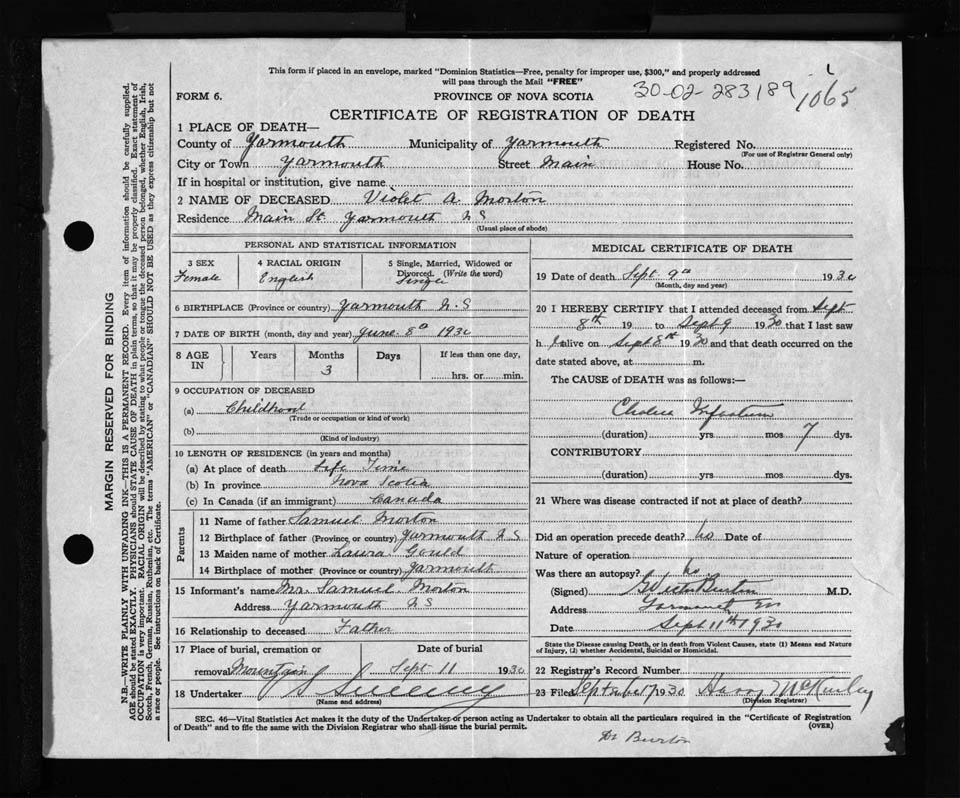 This form if placed in an envelope, marked "Dominion Statistics—Free, penalty for improper use, $300," and properly addressed
will pass through the Mail "FREE"
30-02-283189
1065
FORM 6.
PROVINCE OF NOVA SCOTIA
CERTIFICATE OF REGISTRATION OF DEATH
1 PLACE OF DEATH—
County of Yarmouth Municipality of Yarmouth Registered No.
(For use of Registrar General only)
City or Town Yarmouth Street Main House No.
If in hospital or institution, give name
2 NAME OF DECEASED Violet A. Morton
Residence Main St. Yarmouth N S
(Usual place of abode)
PERSONAL AND STATISTICAL INFORMATION
3 SEX
Female
4 RACIAL ORIGIN
English
5 Single, Married, Widowed or
Divorced. (Write the word)
Single
6 BIRTHPLACE (Province or country) Yarmouth N.S
7 DATE OF BIRTH (month, day and year) June 8th 1930
8 AGE IN
Years
Months
3
Days
If less than one day,
hrs. or min.
9 OCCUPATION OF DECEASED
(a) Childhood
(Trade or occupation or kind of work)
(b)
(Kind of industry)
10 LENGTH OF RESIDENCE (in years and months)
(a) At place of death Life Time
(b) In province Nova Scotia
(c) In Canada (if an immigrant) Canada
Parents
11 Name of father Samuel Morton
12 Birthplace of father (Province or country) Yarmouth N S
13 Maiden name of mother Laura Gould
14 Birthplace of mother (Province or country) Yarmouth
15 Informant's name Mr. Samuel Morton
Address Yarmouth N S
16 Relationship to deceased Father
17 Place of burial, cremation or
removal Mountain
Date of burial
Sept 11 1930
18 Undertaker Sweeny
(Name and address)
MEDICAL CERTIFICATE OF DEATH
19 Date of death Sept 9th 1930
(Month, day and year)
20 I HEREBY CERTIFY that I attended deceased from Sept
8th 19 to Sept 9 1930 that I last saw
h alive on Sept 8th 1930 and that death occurred on the
date stated above, at m.
The CAUSE of DEATH was as follows:—
Cholera Infantum
(duration) yrs mos 7 dys.
CONTRIBUTORY
(duration) yrs. mos. dys.
21 Where was disease contracted if not at place of death?
Did an operation precede death? no Date of
Nature of operation
Was there an autopsy? no
(Signed) Burton M.D.
Address Yarmouth NS
Date Sept 11th 1930
State the Disease causing Death, or in death from Violent Causes, state (1) Means and Nature
of Injury, (2) whether Accidental, Suicidal or Homicidal.
22 Registrar's Record Number
23 Filed September 1930 Harry McKinley
(Division Registrar)
SEC. 46—Vital Statistics Act makes it the duty of the Undertaker or person acting as Undertaker to obtain all the particulars required in the "Certificate of Registration
of Death" and to file the same with the Division Registrar who shall issue the burial permit.
(OVER)
Dr Burton
MARGIN RESERVED FOR BINDING
N.B.—WRITE PLAINLY WITH UNFADING INK—THIS IS A PERMANENT RECORD. Every item of information should be carefully supplied.
AGE should be stated EXACTLY. PHYSICIANS should STATE CAUSE OF DEATH in plain terms, so that it may be properly classified. Exact statement of
OCCUPATION is very important. RACIAL ORIGIN will be described by stating to what people or tongue the deceased person belonged, whether English, Irish,
Scotch, French, German, Russian, Ruthenian, etc. The terms "AMERICAN" or "CANADIAN" SHOULD NOT BE USED as they express citizenship but not
a race or people. See instructions on back of Certificate.